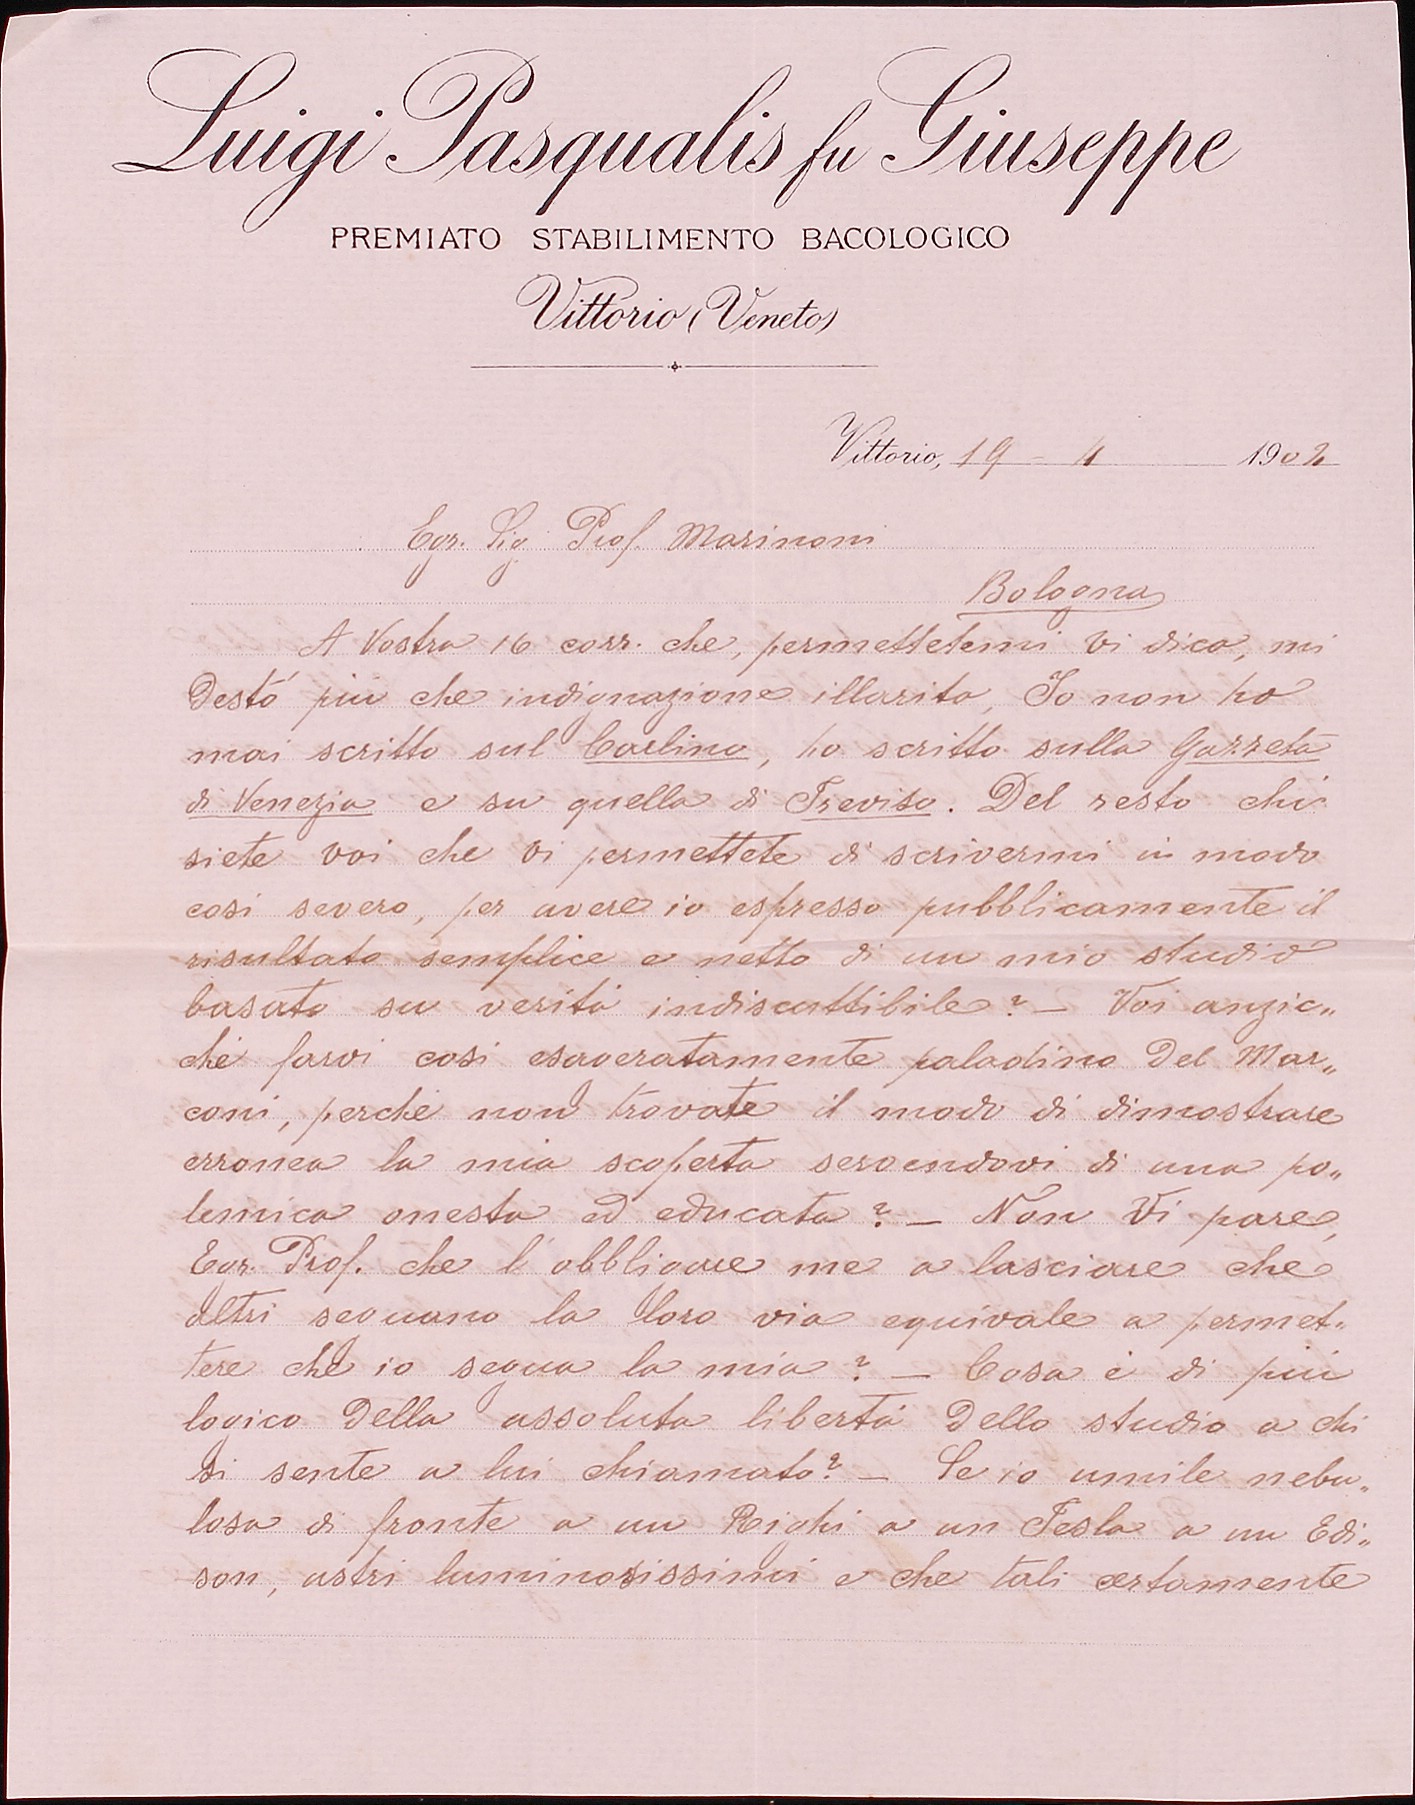 Luigi Pasqualis fu Giuseppe
PREMIATO STABILIMENTO BACOLOGICO
Vittorio (Veneto)
Vittorio, 19 - 4 1902
Egr. Sig. Prof. Marinoni
Bologna
A Vostra 16 corr. che, permettetemi vi dica, mi
destó piú che indignazione illarita, Io non ho
mai scritto sul Carlino, ho scritto sulla Gazzeta
di Venezia e su quella di Treviso. Del resto chi
siete voi che vi permettete di scrivermi in modo
cosi severo, per avere io espresso pubblicamente il
risultato semplice e netto di un mio studio
basato su veritá indiscuttibile? - Voi anzic„
ché farvi cosi esageratamente paladino del Mar„
coni, perché non trovate il modo di dimostrare
erronea la mia scoperta servendovi di una po„
lemica onesta ed educata? - Non Vi pare,
Egr. Prof. che l'obbligare me a lasciare che
altri seguano la loro via equivale a permet„
tere che io segua la mia? - Cosa é di piú
logico della assoluta libertá dello studio a chi
si sente a lui chiamato? - Se io umile nebu„
losa di fronte a un Righi a un Tesla a un Edi„
son, astri luminosissimi e che tali certamente